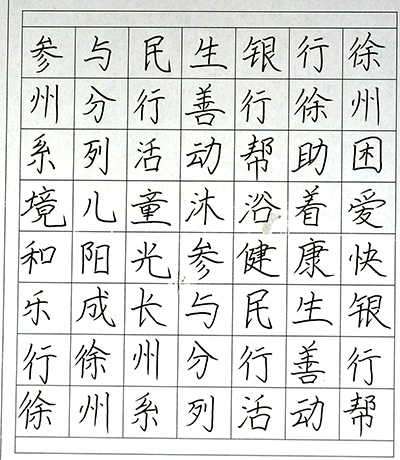 参与民生银行徐
州分行善行徐州
系列活动帮助困
境儿童沐浴着爱
和阳光参健康快
乐成长与民生银
行徐州分行善行
徐州系列活动帮